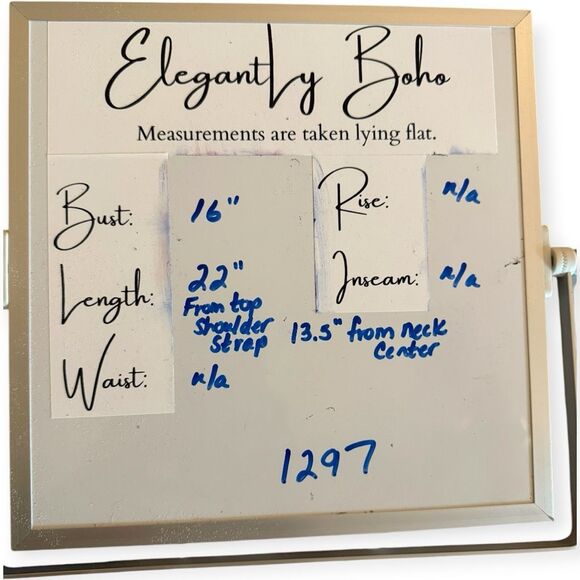 Elegantly Boho
Measurements are taken lying flat.
Bust: 16"
Length: 22"
From top
Shoulder
Strap
13.5" from neck
Center
Waist: n/a
Rise: n/a
Inseam: n/a
1297